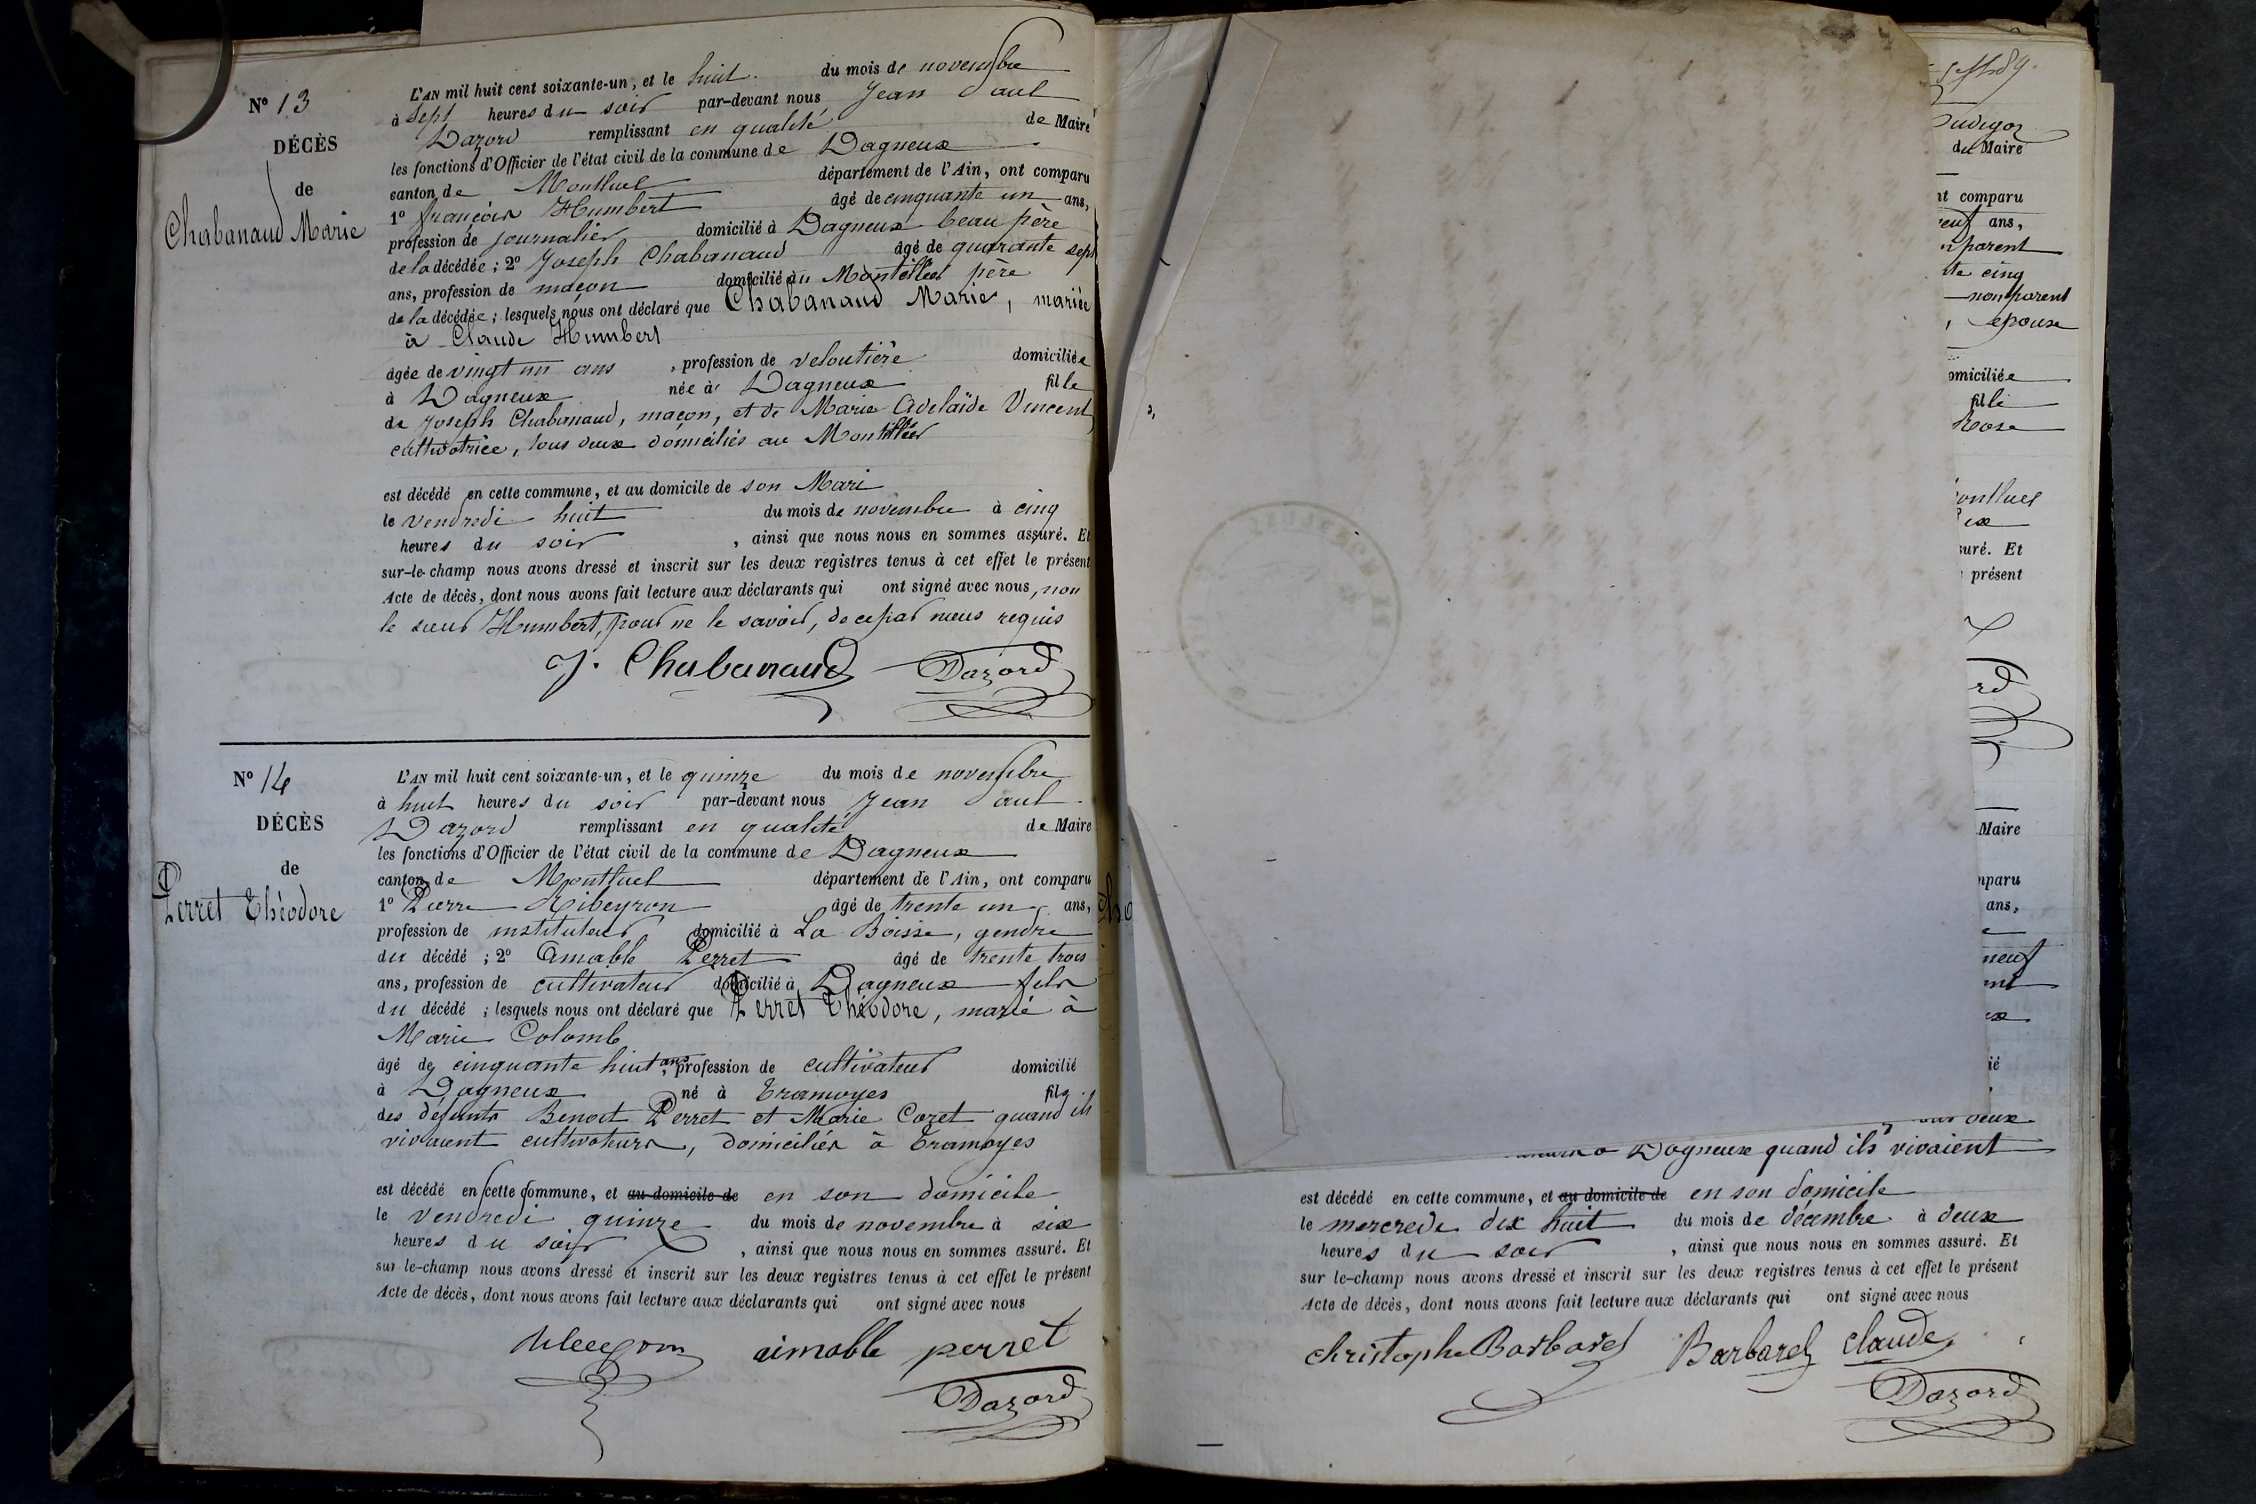 N° 13
DÉCÈS
de
Chabanaud Marie
L'AN mil huit cent soixante-un, et le huit du mois de novembre
à sept heures du soir par-devant nous Jean Paul
Dazord remplissant en qualité de Maire
les fonctions d'Officier de l'état civil de la commune de Dagneux
canton de Montluel département de l'Ain, ont comparu
1° françois Humbert âgé de cinquante un ans,
profession de journalier domicilié à Dagneux beau père
de la décédée ; 2° Joseph Chabanaud âgé de quarante sept
ans, profession de maçon domicilié au père
de la décédée ; lesquels nous ont déclaré que Chabanaud Marie, mariée
à Claude Humbert
âgée de vingt un ans , profession de veloutière domiciliée
à Dagneux née à Dagneux fille
de Joseph Chabanaud, maçon, et de Marie Adelaïde Vincent
cultivatrice, tous deux domiciliés au
est décédé en cette commune, et au domicile de son Mari
le vendredi huit du mois de novembre à cinq
heures du soir , ainsi que nous nous en sommes assuré. Et
sur-le-champ nous avons dressé et inscrit sur les deux registres tenus à cet effet le présent
Acte de décès, dont nous avons fait lecture aux déclarants qui ont signé avec nous, non
le sieur Humbert, pour ne le savoir, de ce par nous requis
J. Chabanaud Dazord
N° 14
DÉCÈS
de
Perret Théodore
L'AN mil huit cent soixante-un, et le quinze du mois de novembre
à huit heures du soir par-devant nous Jean Paul
Dazord remplissant en qualité de Maire
les fonctions d'Officier de l'état civil de la commune de Dagneux
canton de Montluel département de l'Ain, ont comparu
1° Pierre Ribeyron âgé de trente un ans,
profession de instituteur domicilié à La Boisse, gendre
du décédé ; 2° Amable Perret âgé de trente trois
ans, profession de cultivateur domicilié à Dagneux fils
du décédé ; lesquels nous ont déclaré que Perret Théodore, marié à
Marie Colomb
âgé de cinquante huit ans, profession de cultivateur domicilié
à Dagneux né à Tramoyes fils
des défunts Benoit Perret et Marie Cozet quand ils
vivaient cultivateurs, domiciliés à Tramoyes
est décédé en cette commune, et au domicile de en son domicile
le vendredi quinze du mois de novembre à six
heures du soir , ainsi que nous nous en sommes assuré. Et
sur le-champ nous avons dressé et inscrit sur les deux registres tenus à cet effet le présent
Acte de décès, dont nous avons fait lecture aux déclarants qui ont signé avec nous
aimable perret
Dazord
du Maire
nt comparu
ans,
parent
cinq
non parent
, épouse
omiciliée
fille
Rose
ontluel
suré. Et
présent
Maire
mparu
ans,
neuf
ié
deux
à Dagneux quand ils vivaient
est décédé en cette commune, et au domicile de en son domicile
le mercredi dix huit du mois de décembre à deux
heures du soir , ainsi que nous nous en sommes assuré. Et
sur le-champ nous avons dressé et inscrit sur les deux registres tenus à cet effet le présent
Acte de décès, dont nous avons fait lecture aux déclarants qui ont signé avec nous
christophe Barbarel Barbarel claude
Dazord